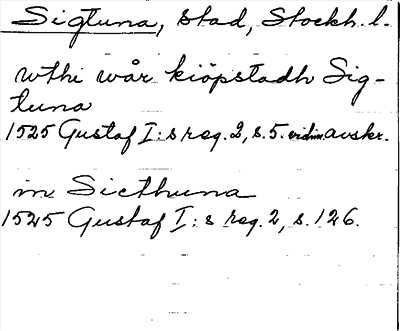 Sigtuna, stad, Stockh. l.
wthi wår kiöpstadh Sig-
tuna
1525 Gustaf I:s reg. 2, s. 5. vidim. avskr.
in Sicthuna
1525 Gustaf I:s reg. 2, s. 126.